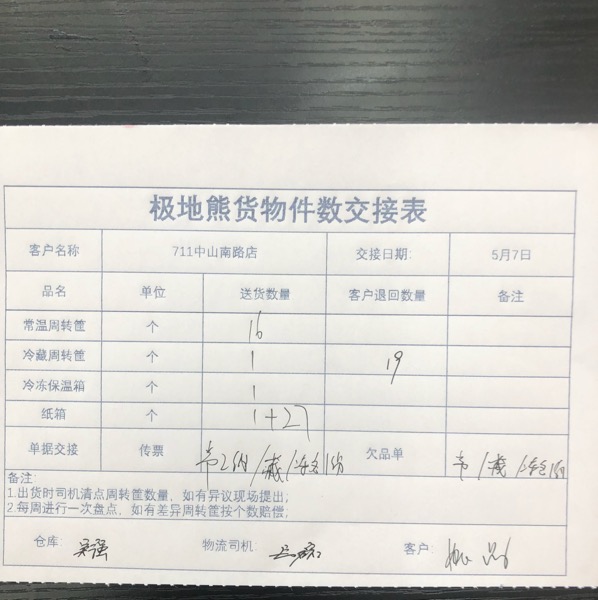 极地熊货物件数交接表
客户名称 711中山南路店 交接日期: 5月7日
品名 单位 送货数量 客户退回数量 备注
常温周转筐 个 16
冷藏周转筐 个 1 19
冷冻保温箱 个 1
纸箱 个 1+27
单据交接 传票 欠品单
备注:
1.出货时司机清点周转筐数量，如有异议现场提出;
2.每周进行一次盘点，如有差异周转筐按个数赔偿;
仓库: 吴强 物流司机: 客户: